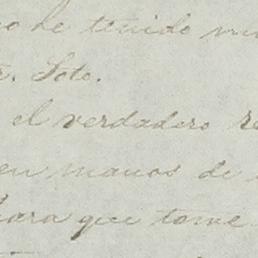 de tenido
Soto.
el verdadero
en manos de
para que tome